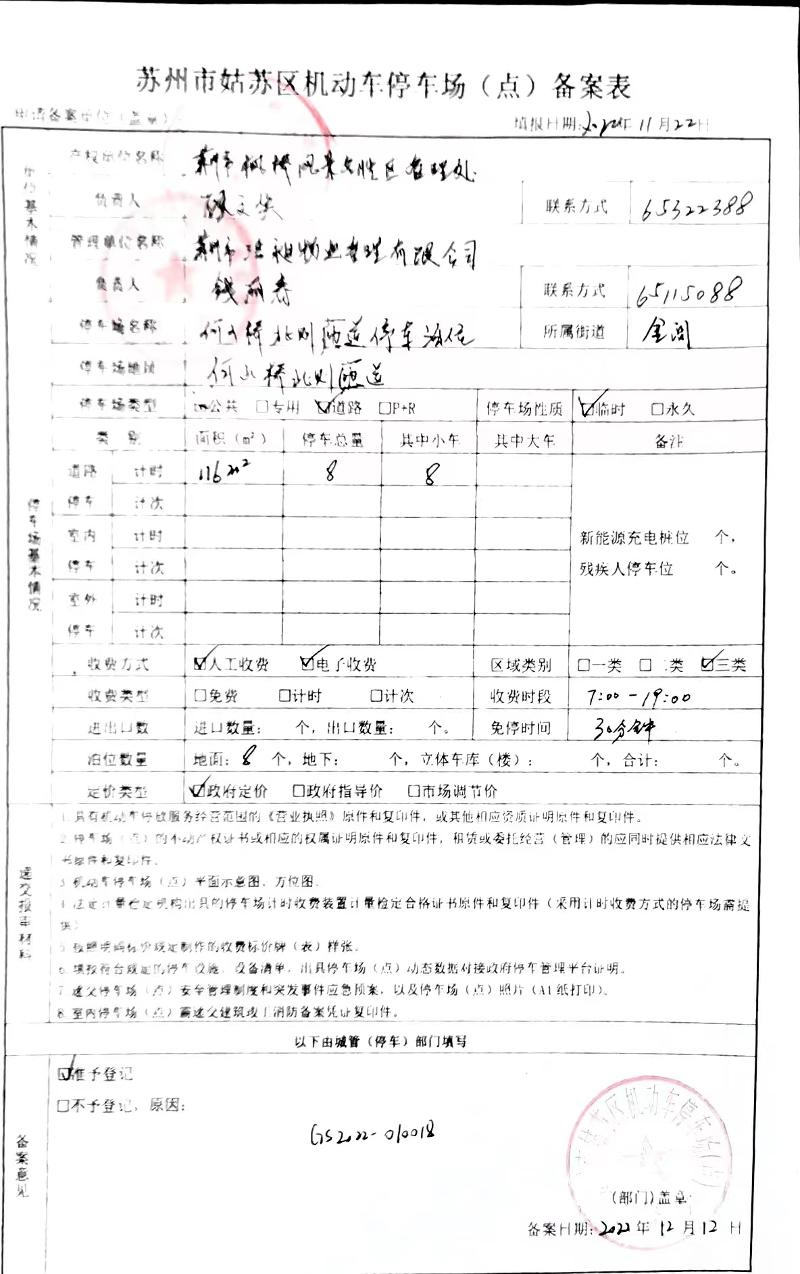 苏州市姑苏区机动车停车场（点）备案表
申请备案单位（盖章）
填报日期：2022年11月22日
单位基本情况
产权单位名称 苏州市枫桥风景名胜区管理处
负责人 联系方式 65322388
管理单位名称 物业管理有限公司
负责人 钱丽春 联系方式 65115088
停车场名称 何山桥北侧匝道停车泊位 所属街道 金阊
停车场地址 何山桥北侧匝道
停车场基本情况
停车场类型 ☑公共 □专用 ☑道路 □P+R 停车场性质 ☑临时 □永久
类 别 面积（m²） 停车总量 其中小车 其中大车 备注
道路 计时 116m² 8 8
停车 计次
室内 计时 新能源充电桩位 个，
停车 计次 残疾人停车位 个。
室外 计时
停车 计次
收费方式 ☑人工收费 ☑电子收费 区域类别 □一类 □二类 ☑三类
收费类型 □免费 □计时 □计次 收费时段 7:00-19:00
进出口数 进口数量： 个，出口数量： 个。 免停时间 30分钟
泊位数量 地面：8 个，地下： 个，立体车库（楼）： 个，合计： 个。
定价类型 ☑政府定价 □政府指导价 □市场调节价
递交报审材料
1.具有机动车停放服务经营范围的《营业执照》原件和复印件，或其他相应资质证明原件和复印件。
2.停车场（点）的不动产权证书或相应的权属证明原件和复印件，租赁或委托经营（管理）的应同时提供相应法律文
书原件和复印件。
3.机动车停车场（点）平面示意图、方位图。
4.法定计量检定机构出具的停车场计时收费装置计量检定合格证书原件和复印件（采用计时收费方式的停车场需提
供）
5.按照明码标价规定制作的收费标价牌（表）样张。
6.填报符合规定的停车设施、设备清单，出具停车场（点）动态数据对接政府停车管理平台证明。
7.递交停车场（点）安全管理制度和突发事件应急预案，以及停车场（点）照片（A4纸打印）。
8.室内停车场（点）需递交建筑竣工消防备案凭证复印件。
以下由城管（停车）部门填写
备案意见
☑准予登记
□不予登记，原因：
GS2022-010018
（部门）盖章
备案日期：2022年12月12日